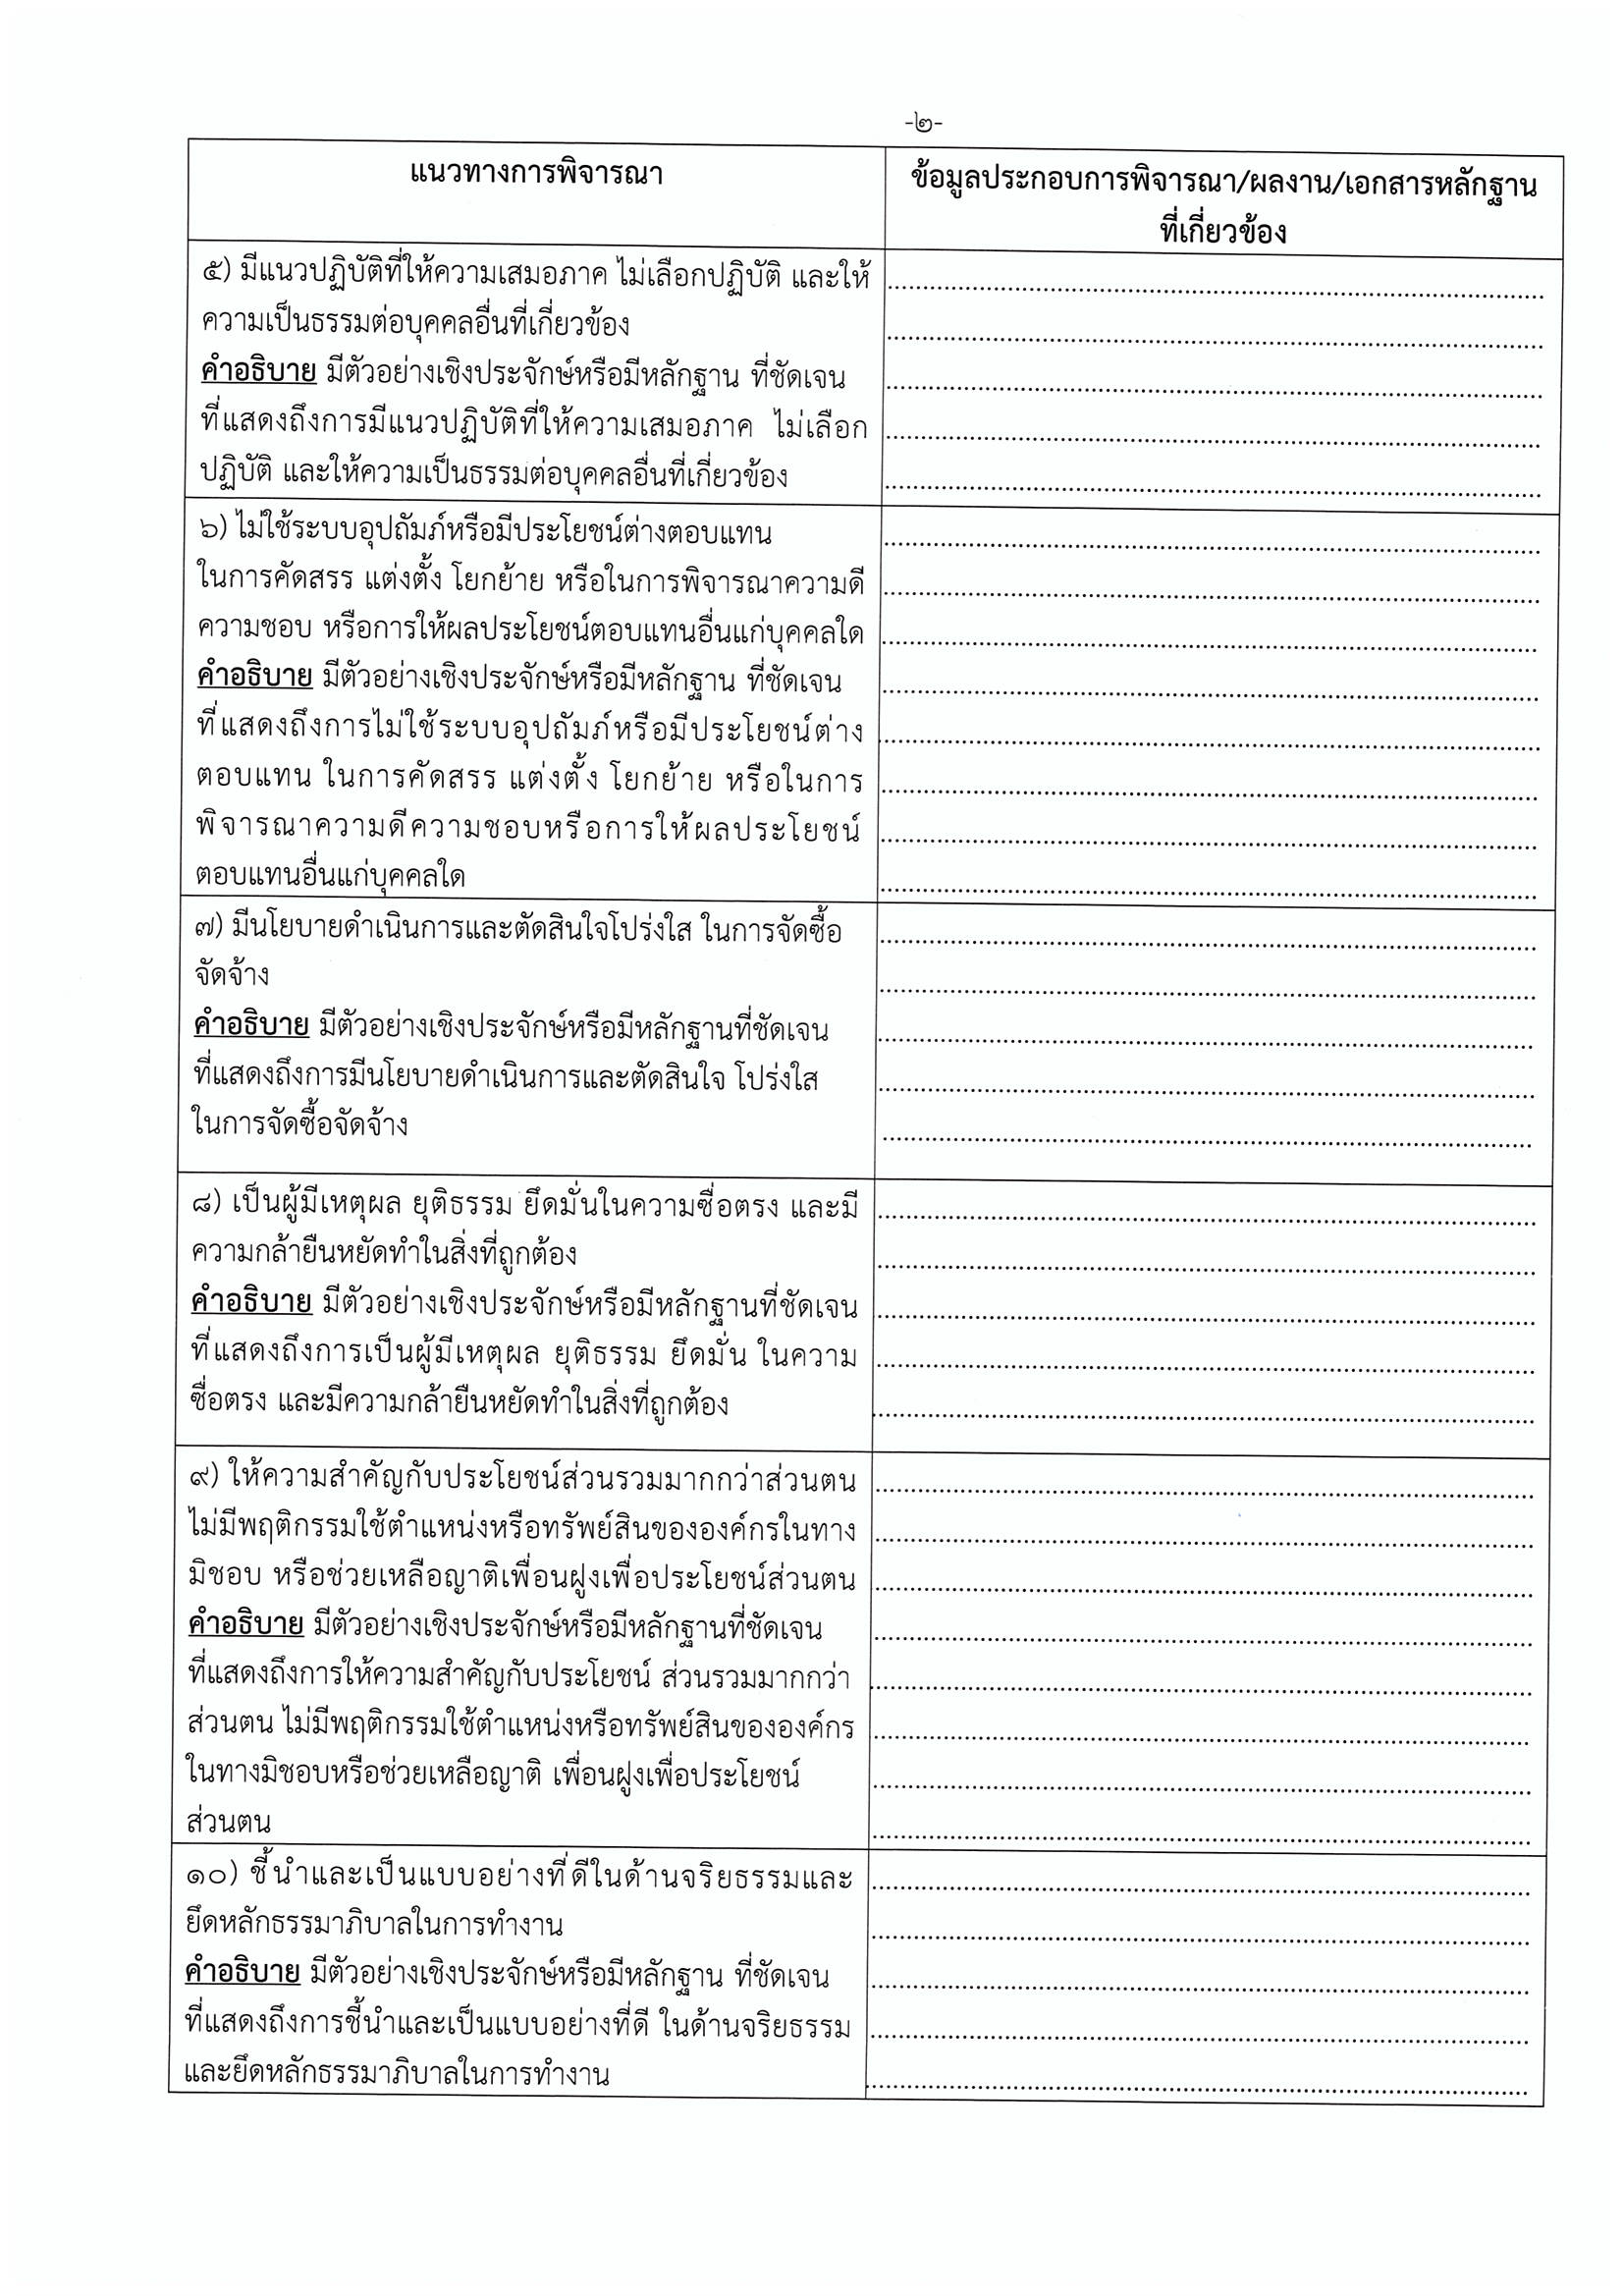 -๒-
แนวทางการพิจารณา
ข้อมูลประกอบการพิจารณา/ผลงาน/เอกสารหลักฐาน
ที่เกี่ยวข้อง
๕) มีแนวปฏิบัติที่ให้ความเสมอภาค ไม่เลือกปฏิบัติ และให้
ความเป็นธรรมต่อบุคคลอื่นที่เกี่ยวข้อง
คำอธิบาย มีตัวอย่างเชิงประจักษ์หรือมีหลักฐาน ที่ชัดเจน
ที่แสดงถึงการมีแนวปฏิบัติที่ให้ความเสมอภาค ไม่เลือก
ปฏิบัติ และให้ความเป็นธรรมต่อบุคคลอื่นที่เกี่ยวข้อง
๖) ไม่ใช้ระบบอุปถัมภ์หรือมีประโยชน์ต่างตอบแทน
ในการคัดสรร แต่งตั้ง โยกย้าย หรือในการพิจารณาความดี
ความชอบ หรือการให้ผลประโยชน์ตอบแทนอื่นแก่บุคคลใด
คำอธิบาย มีตัวอย่างเชิงประจักษ์หรือมีหลักฐาน ที่ชัดเจน
ที่แสดงถึงการไม่ใช้ระบบอุปถัมภ์หรือมีประโยชน์ต่าง
ตอบแทน ในการคัดสรร แต่งตั้ง โยกย้าย หรือในการ
พิจารณาความดีความชอบหรือการให้ผลประโยชน์
ตอบแทนอื่นแก่บุคคลใด
๗) มีนโยบายดำเนินการและตัดสินใจโปร่งใส ในการจัดซื้อ
จัดจ้าง
คำอธิบาย มีตัวอย่างเชิงประจักษ์หรือมีหลักฐานที่ชัดเจน
ที่แสดงถึงการมีนโยบายดำเนินการและตัดสินใจ โปร่งใส
ในการจัดซื้อจัดจ้าง
๘) เป็นผู้มีเหตุผล ยุติธรรม ยึดมั่นในความซื่อตรง และมี
ความกล้ายืนหยัดทำในสิ่งที่ถูกต้อง
คำอธิบาย มีตัวอย่างเชิงประจักษ์หรือมีหลักฐานที่ชัดเจน
ที่แสดงถึงการเป็นผู้มีเหตุผล ยุติธรรม ยึดมั่น ในความ
ซื่อตรง และมีความกล้ายืนหยัดทำในสิ่งที่ถูกต้อง
๙) ให้ความสำคัญกับประโยชน์ส่วนรวมมากกว่าส่วนตน
ไม่มีพฤติกรรมใช้ตำแหน่งหรือทรัพย์สินขององค์กรในทาง
มิชอบ หรือช่วยเหลือญาติเพื่อนฝูงเพื่อประโยชน์ส่วนตน
คำอธิบาย มีตัวอย่างเชิงประจักษ์หรือมีหลักฐานที่ชัดเจน
ที่แสดงถึงการให้ความสำคัญกับประโยชน์ ส่วนรวมมากกว่า
ส่วนตน ไม่มีพฤติกรรมใช้ตำแหน่งหรือทรัพย์สินขององค์กร
ในทางมิชอบหรือช่วยเหลือญาติ เพื่อนฝูงเพื่อประโยชน์
ส่วนตน
๑๐) ชี้นำและเป็นแบบอย่างที่ดีในด้านจริยธรรมและ
ยึดหลักธรรมาภิบาลในการทำงาน
คำอธิบาย มีตัวอย่างเชิงประจักษ์หรือมีหลักฐาน ที่ชัดเจน
ที่แสดงถึงการชี้นำและเป็นแบบอย่างที่ดี ในด้านจริยธรรม
และยึดหลักธรรมาภิบาลในการทำงาน